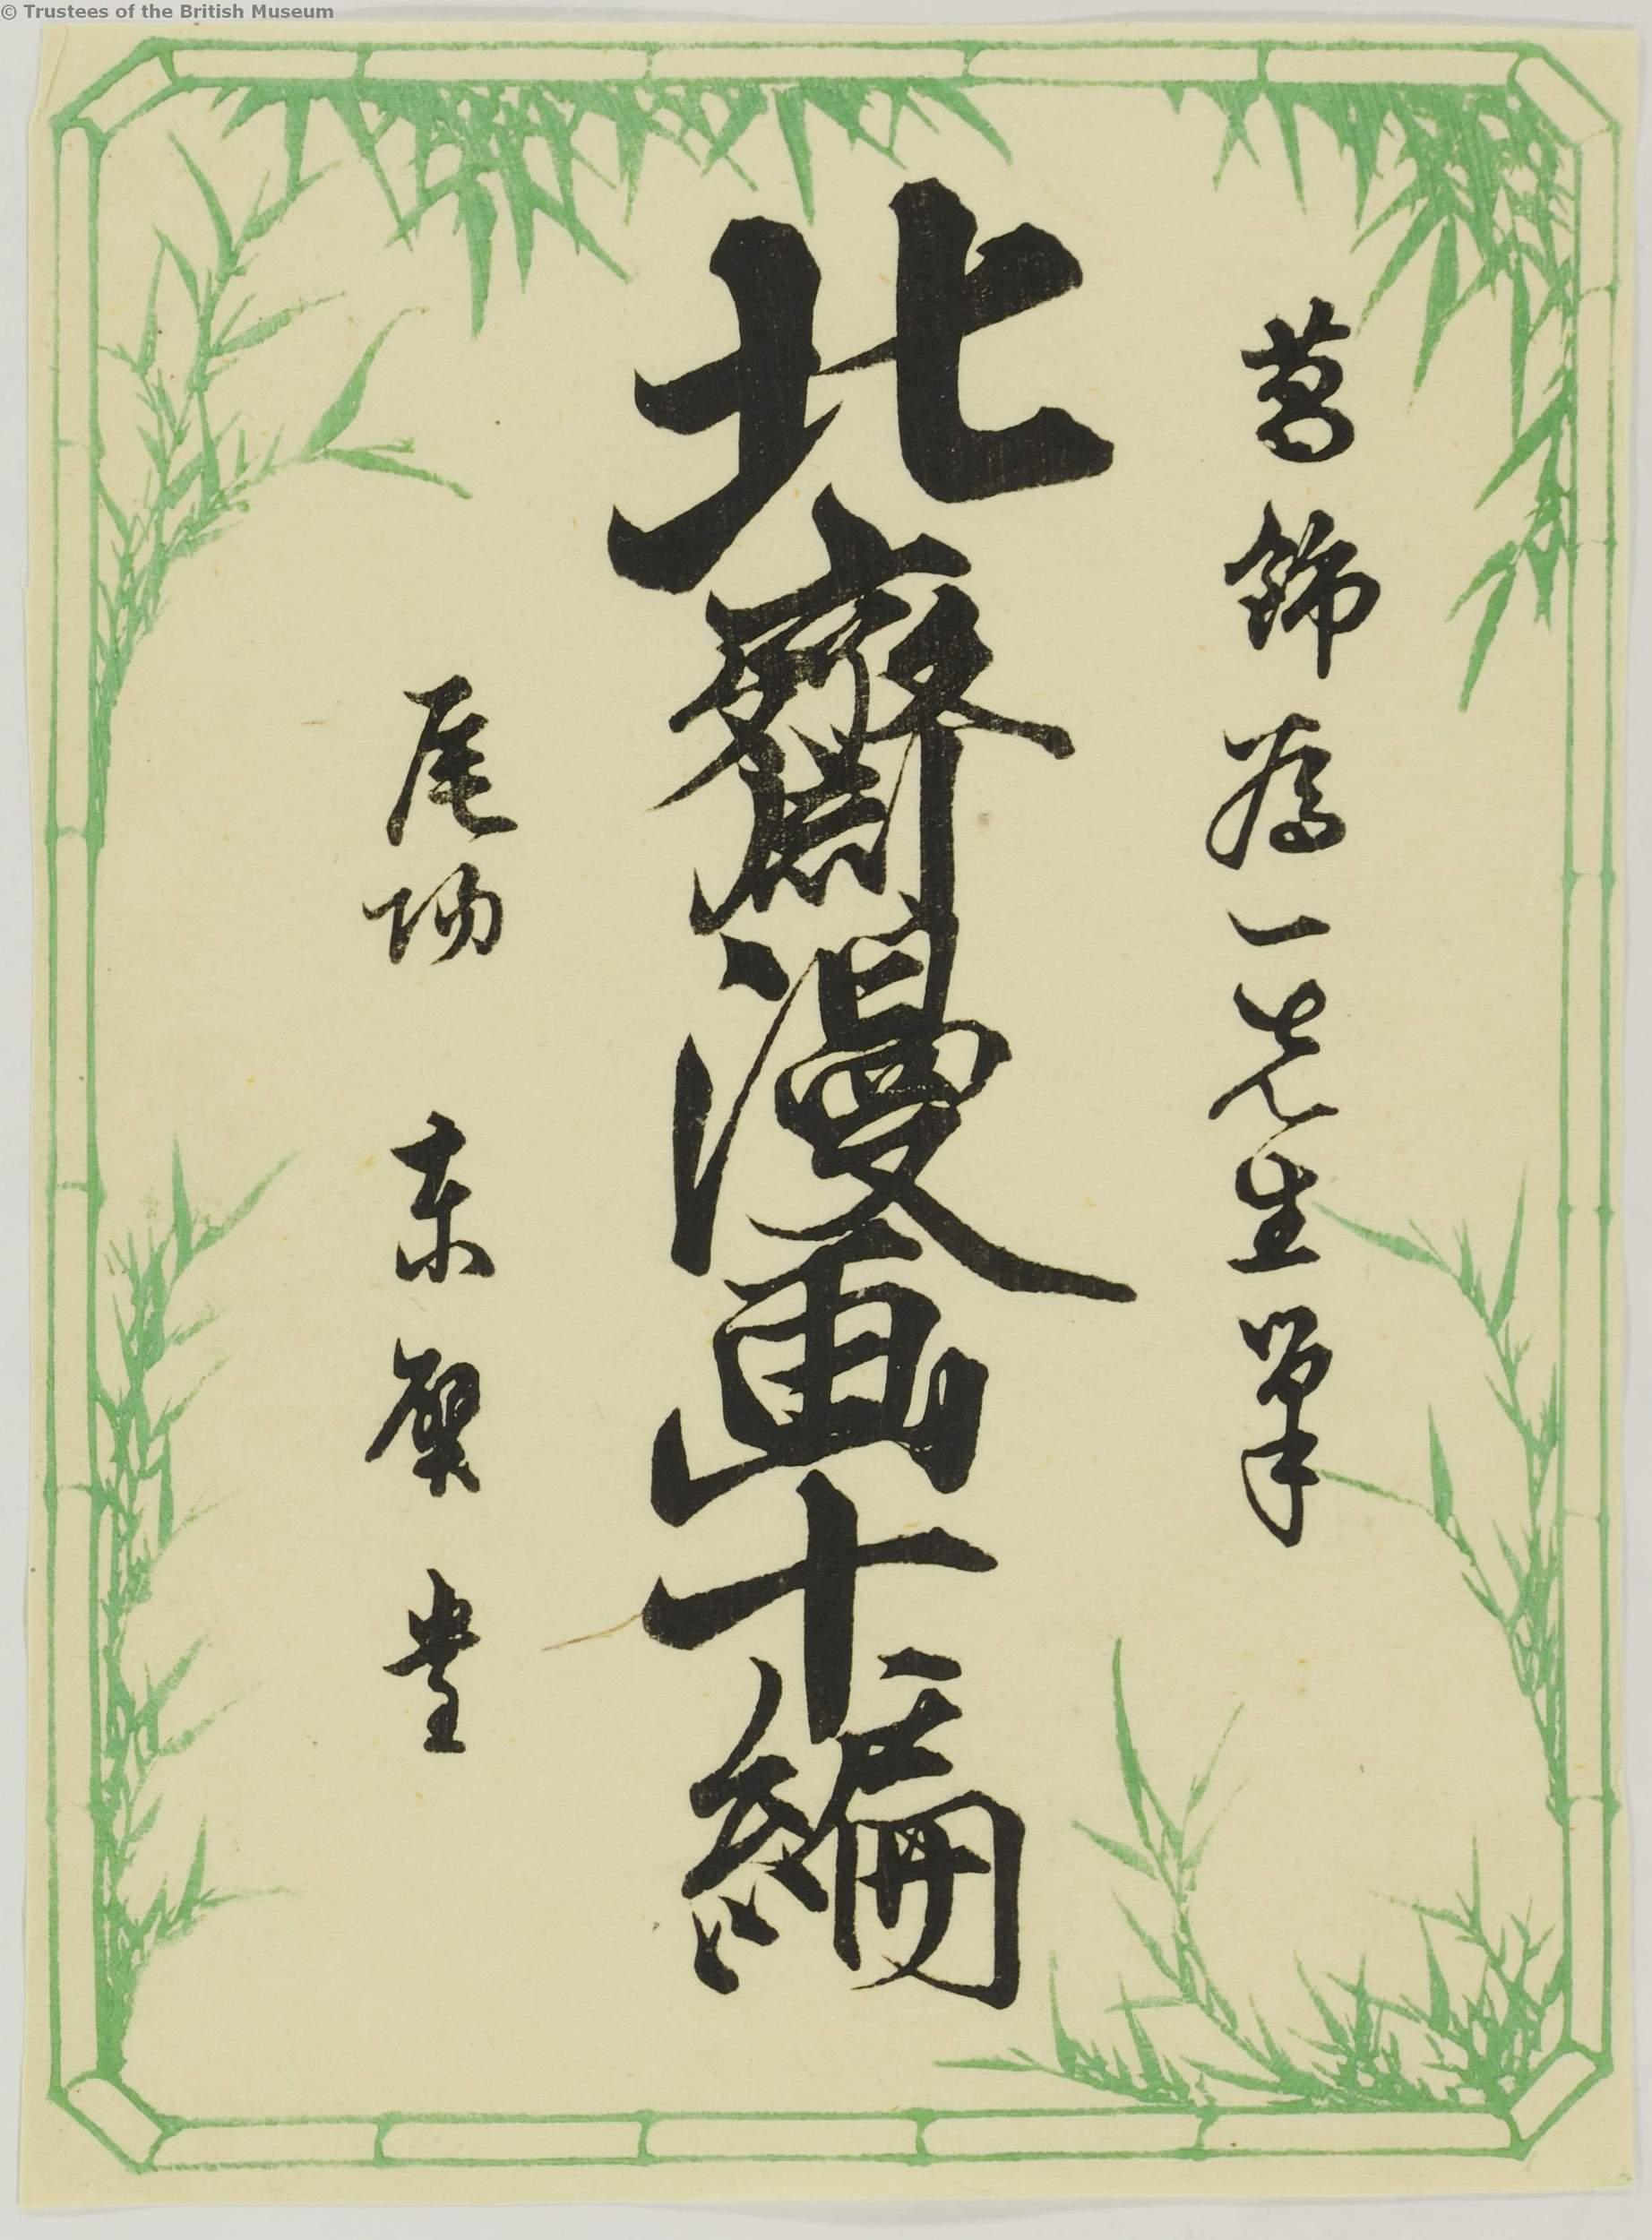 © Trustees of the British Museum
葛飾為一先生筆
北齋漫画十編
尾陽 東壁堂